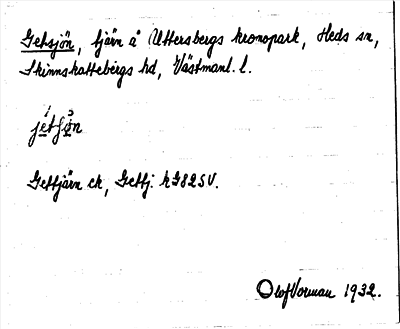 Getsjön, tjärn å Uttersbergs kronopark, Heds sn,
Skinnskattebergs hd, Västmanl. l.
jetʃøn
Gettjärn ek, Gettj. k G82SV.
Olof Vorman 1932.